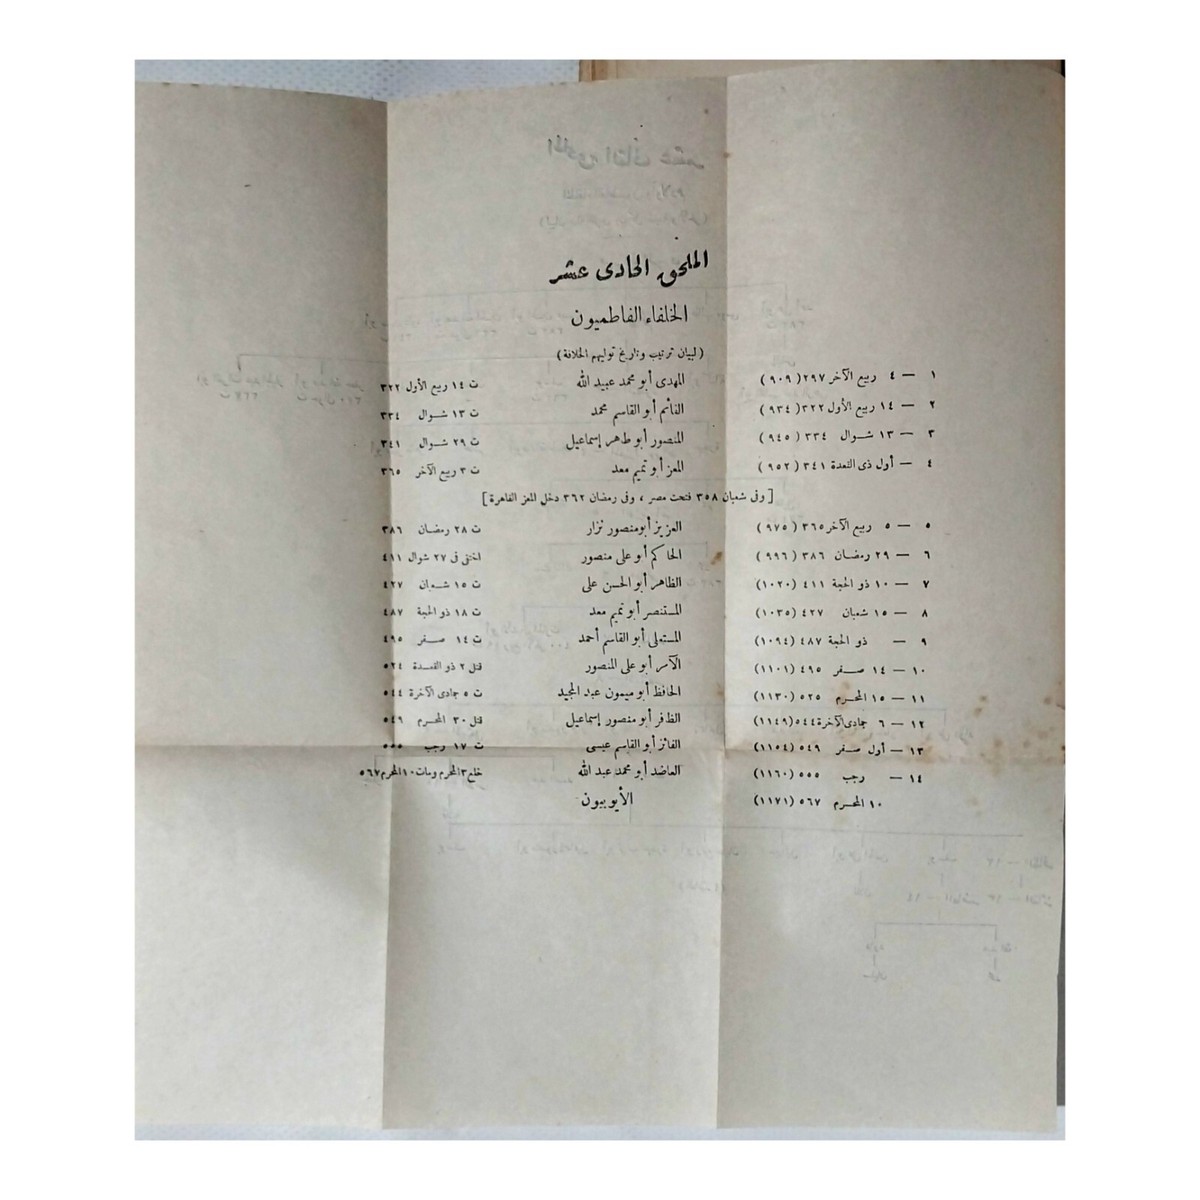 الملحق الحادى عشر
الخلفاء الفاطميون
(لبيان ترتيب وتاريخ توليهم الخلافة)
١ — ٤ ربيع الآخر ٢٩٧ (٩٠٩) المهدى أبو محمد عبيد الله ت ١٤ ربيع الأول ٣٢٢
٢ — ١٤ ربيع الأول ٣٢٢ (٩٣٤) القائم أبو القاسم محمد ت ١٣ شوال ٣٣٤
٣ — ١٣ شوال ٣٣٤ (٩٤٥) المنصور أبو طاهر إسماعيل ت ٢٩ شوال ٣٤١
٤ — أول ذى القعدة ٣٤١ (٩٥٢) المعز أبو تميم معد ت ٣ ربيع الآخر ٣٦٥
[وفى شعبان ٣٥٨ فتحت مصر ، وفى رمضان ٣٦٢ دخل المعز القاهرة]
٥ — ٥ ربيع الآخر ٣٦٥ (٩٧٥) العزيز أبو منصور نزار ت ٢٨ رمضان ٣٨٦
٦ — ٢٩ رمضان ٣٨٦ (٩٩٦) الحاكم أبو على منصور اختفى فى ٢٧ شوال ٤١١
٧ — ١٠ ذو الحجة ٤١١ (١٠٢٠) الظاهر أبو الحسن على ت ١٥ شعبان ٤٢٧
٨ — ١٥ شعبان ٤٢٧ (١٠٣٥) المستنصر أبو تميم معد ت ١٨ ذو الحجة ٤٨٧
٩ — ذو الحجة ٤٨٧ (١٠٩٤) المستعلى أبو القاسم أحمد ت ١٤ صفر ٤٩٥
١٠ — ١٤ صفر ٤٩٥ (١١٠١) الآمر أبو على المنصور قتل ٢ ذو القعدة ٥٢٤
١١ — ١٥ المحرم ٥٢٥ (١١٣٠) الحافظ أبو ميمون عبد المجيد ت ٥ جمادى الآخرة ٥٤٤
١٢ — ٦ جمادى الآخرة ٥٤٤ (١١٤٩) الظافر أبو منصور إسماعيل قتل ٣٠ المحرم ٥٤٩
١٣ — أول صفر ٥٤٩ (١١٥٤) الفائز أبو القاسم عيسى ت ١٧ رجب ٥٥٥
١٤ — رجب ٥٥٥ (١١٦٠) العاضد أبو محمد عبد الله خلع ٣ المحرم ومات ١٠ المحرم ٥٦٧
١٠ المحرم ٥٦٧ (١١٧١) الأيوبيون